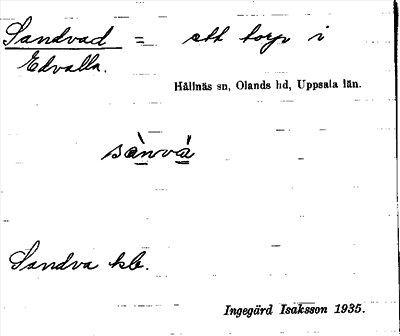 Sandvad = ett torp i
Edvalla.
Hållnäs sn, Olands hd, Uppsala län.
sànvà
Sandva kb.
Ingegärd Isaksson 1935.